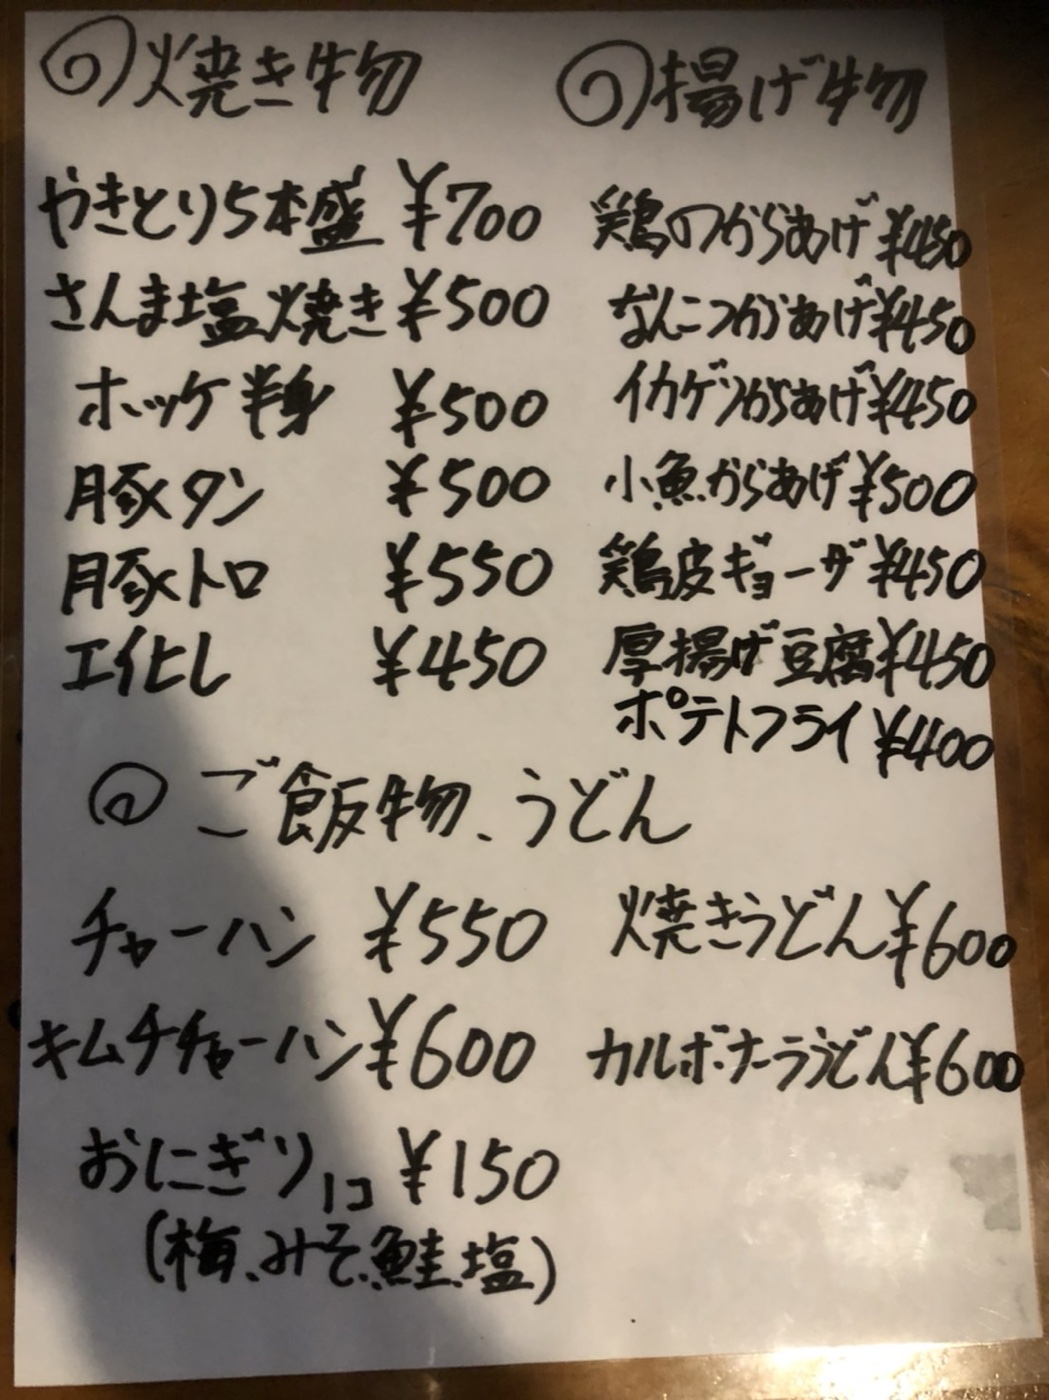 ◎焼き物
やきとり5本盛 ¥700
さんま塩焼き ¥500
ホッケ半身 ¥500
豚タン ¥500
豚トロ ¥550
エイヒレ ¥450
◎揚げ物
鶏のからあげ ¥450
なんこつからあげ ¥450
イカゲソからあげ ¥450
小魚からあげ ¥500
鶏皮ギョーザ ¥450
厚揚げ豆腐 ¥450
ポテトフライ ¥400
◎ご飯物、うどん
チャーハン ¥550
キムチチャーハン ¥600
おにぎり1コ ¥150
(梅、みそ、鮭、塩)
焼きうどん ¥600
カルボナーラうどん ¥600